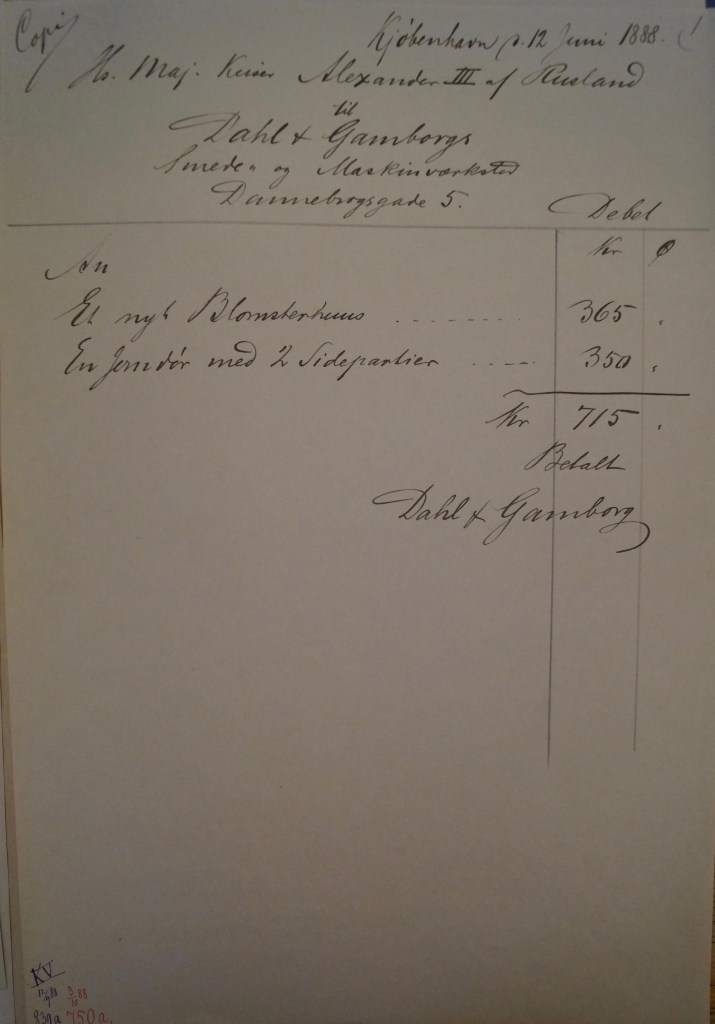 Copi
Kjøbenhavn d. 12 Juni 1888.
Hs. Maj. Keiser Alexander III af Rusland
til
Dahl & Gamborgs
Smede- og Maskinværksted
Dannebrogsgade 5.
Debet
Kr Ø
An
Et nyt Blomsterhuus 365 .
En Jerndør med 2 Sidepartier 350 .
Kr 715 .
Betalt
Dahl & Gamborg
KV
839a 750a.